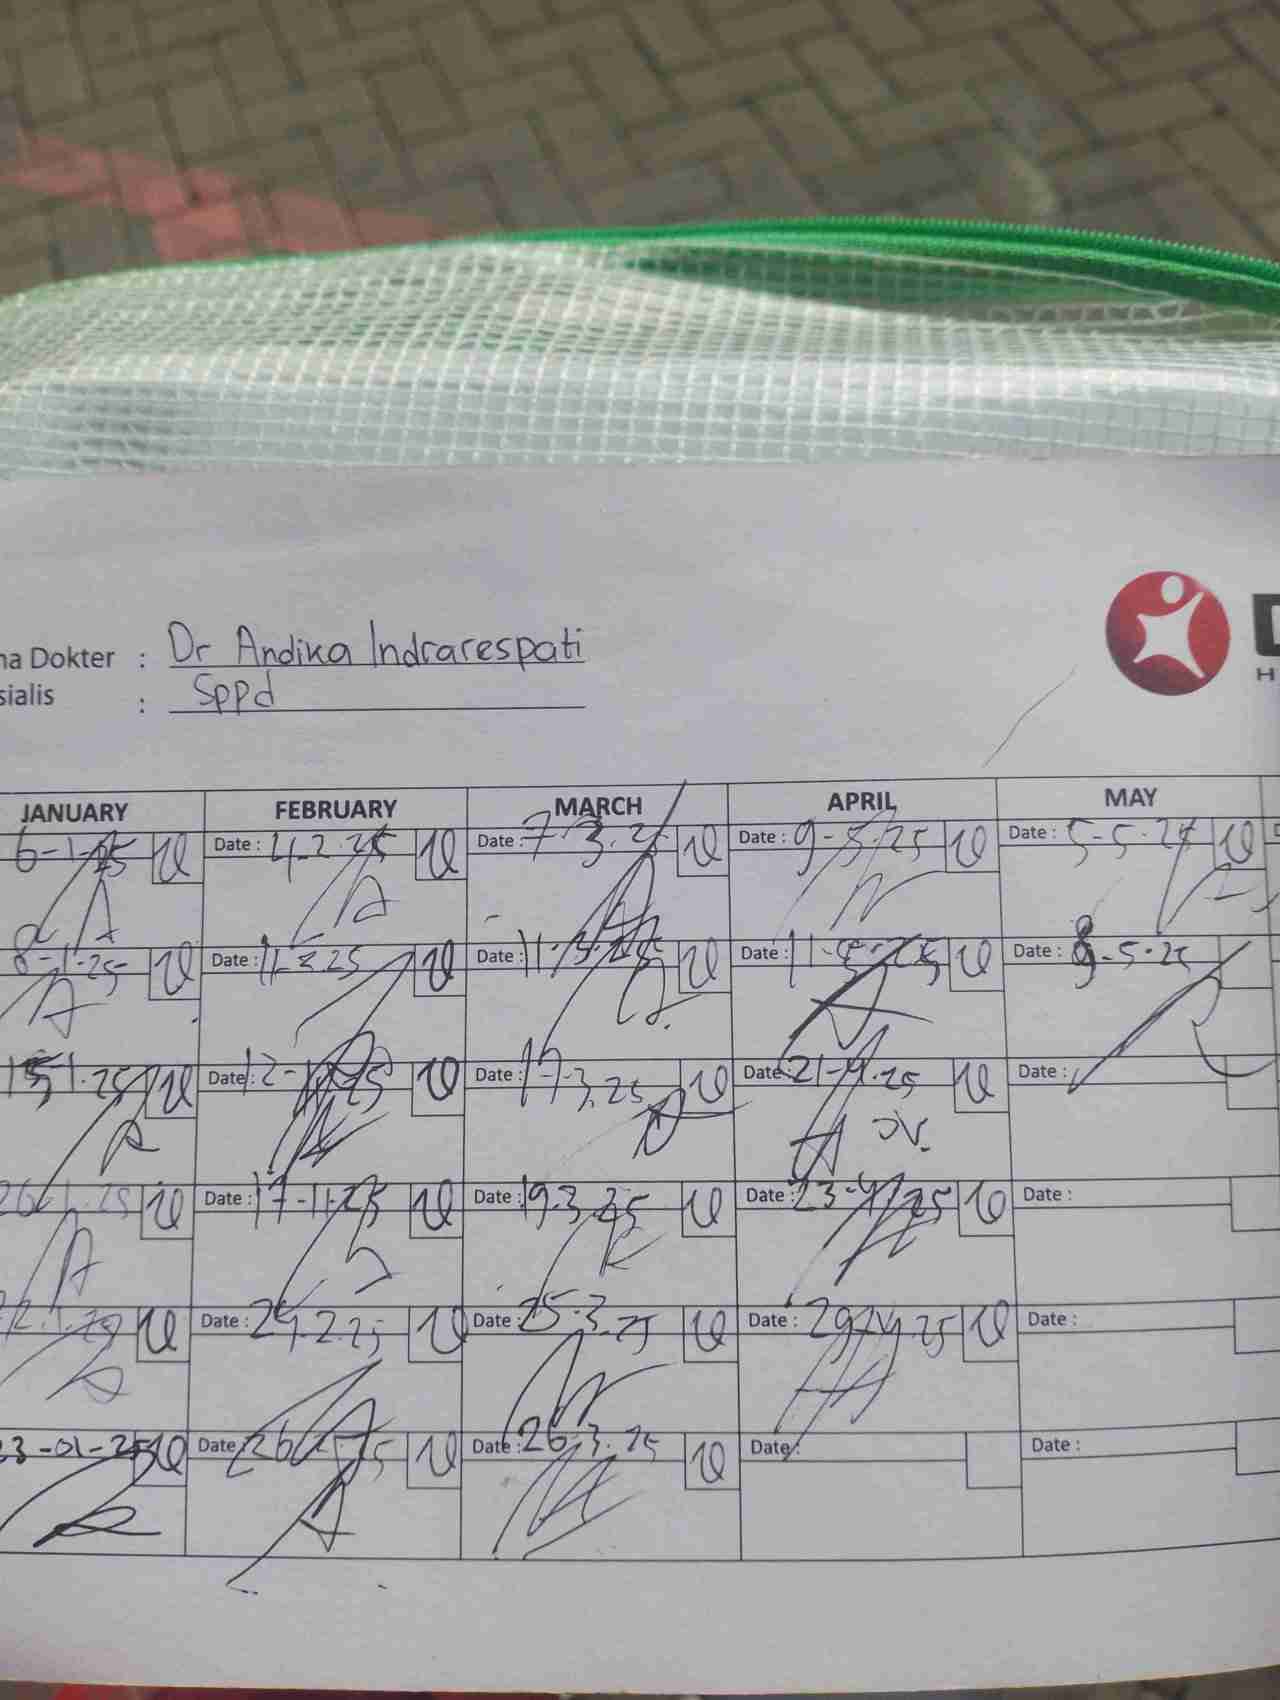 na Dokter : Dr Andika Indrarespati
sialis : Sppd
H
JANUARY FEBRUARY MARCH APRIL MAY
6-1-25 Date : 4.2.25 Date : 7 3.2 Date : 9-5.25 Date : 5-5.24
8-1-25 Date : 11-2.25 Date : 11.3.25 Date : 11-4-25 Date : 8-5.25
15-1.25 Date : 12- 25 Date : 17-3.25 Date : 21-4.25 Date :
ov.
26.1.25 Date : 17-11-25 Date : 19.3.25 Date : 23-4-25 Date :
Date : 24.2.25 Date : 25.3.25 Date : 29.4.25 Date :
23-01-25 Date : 26 25 Date : 26.3.25 Date : Date :